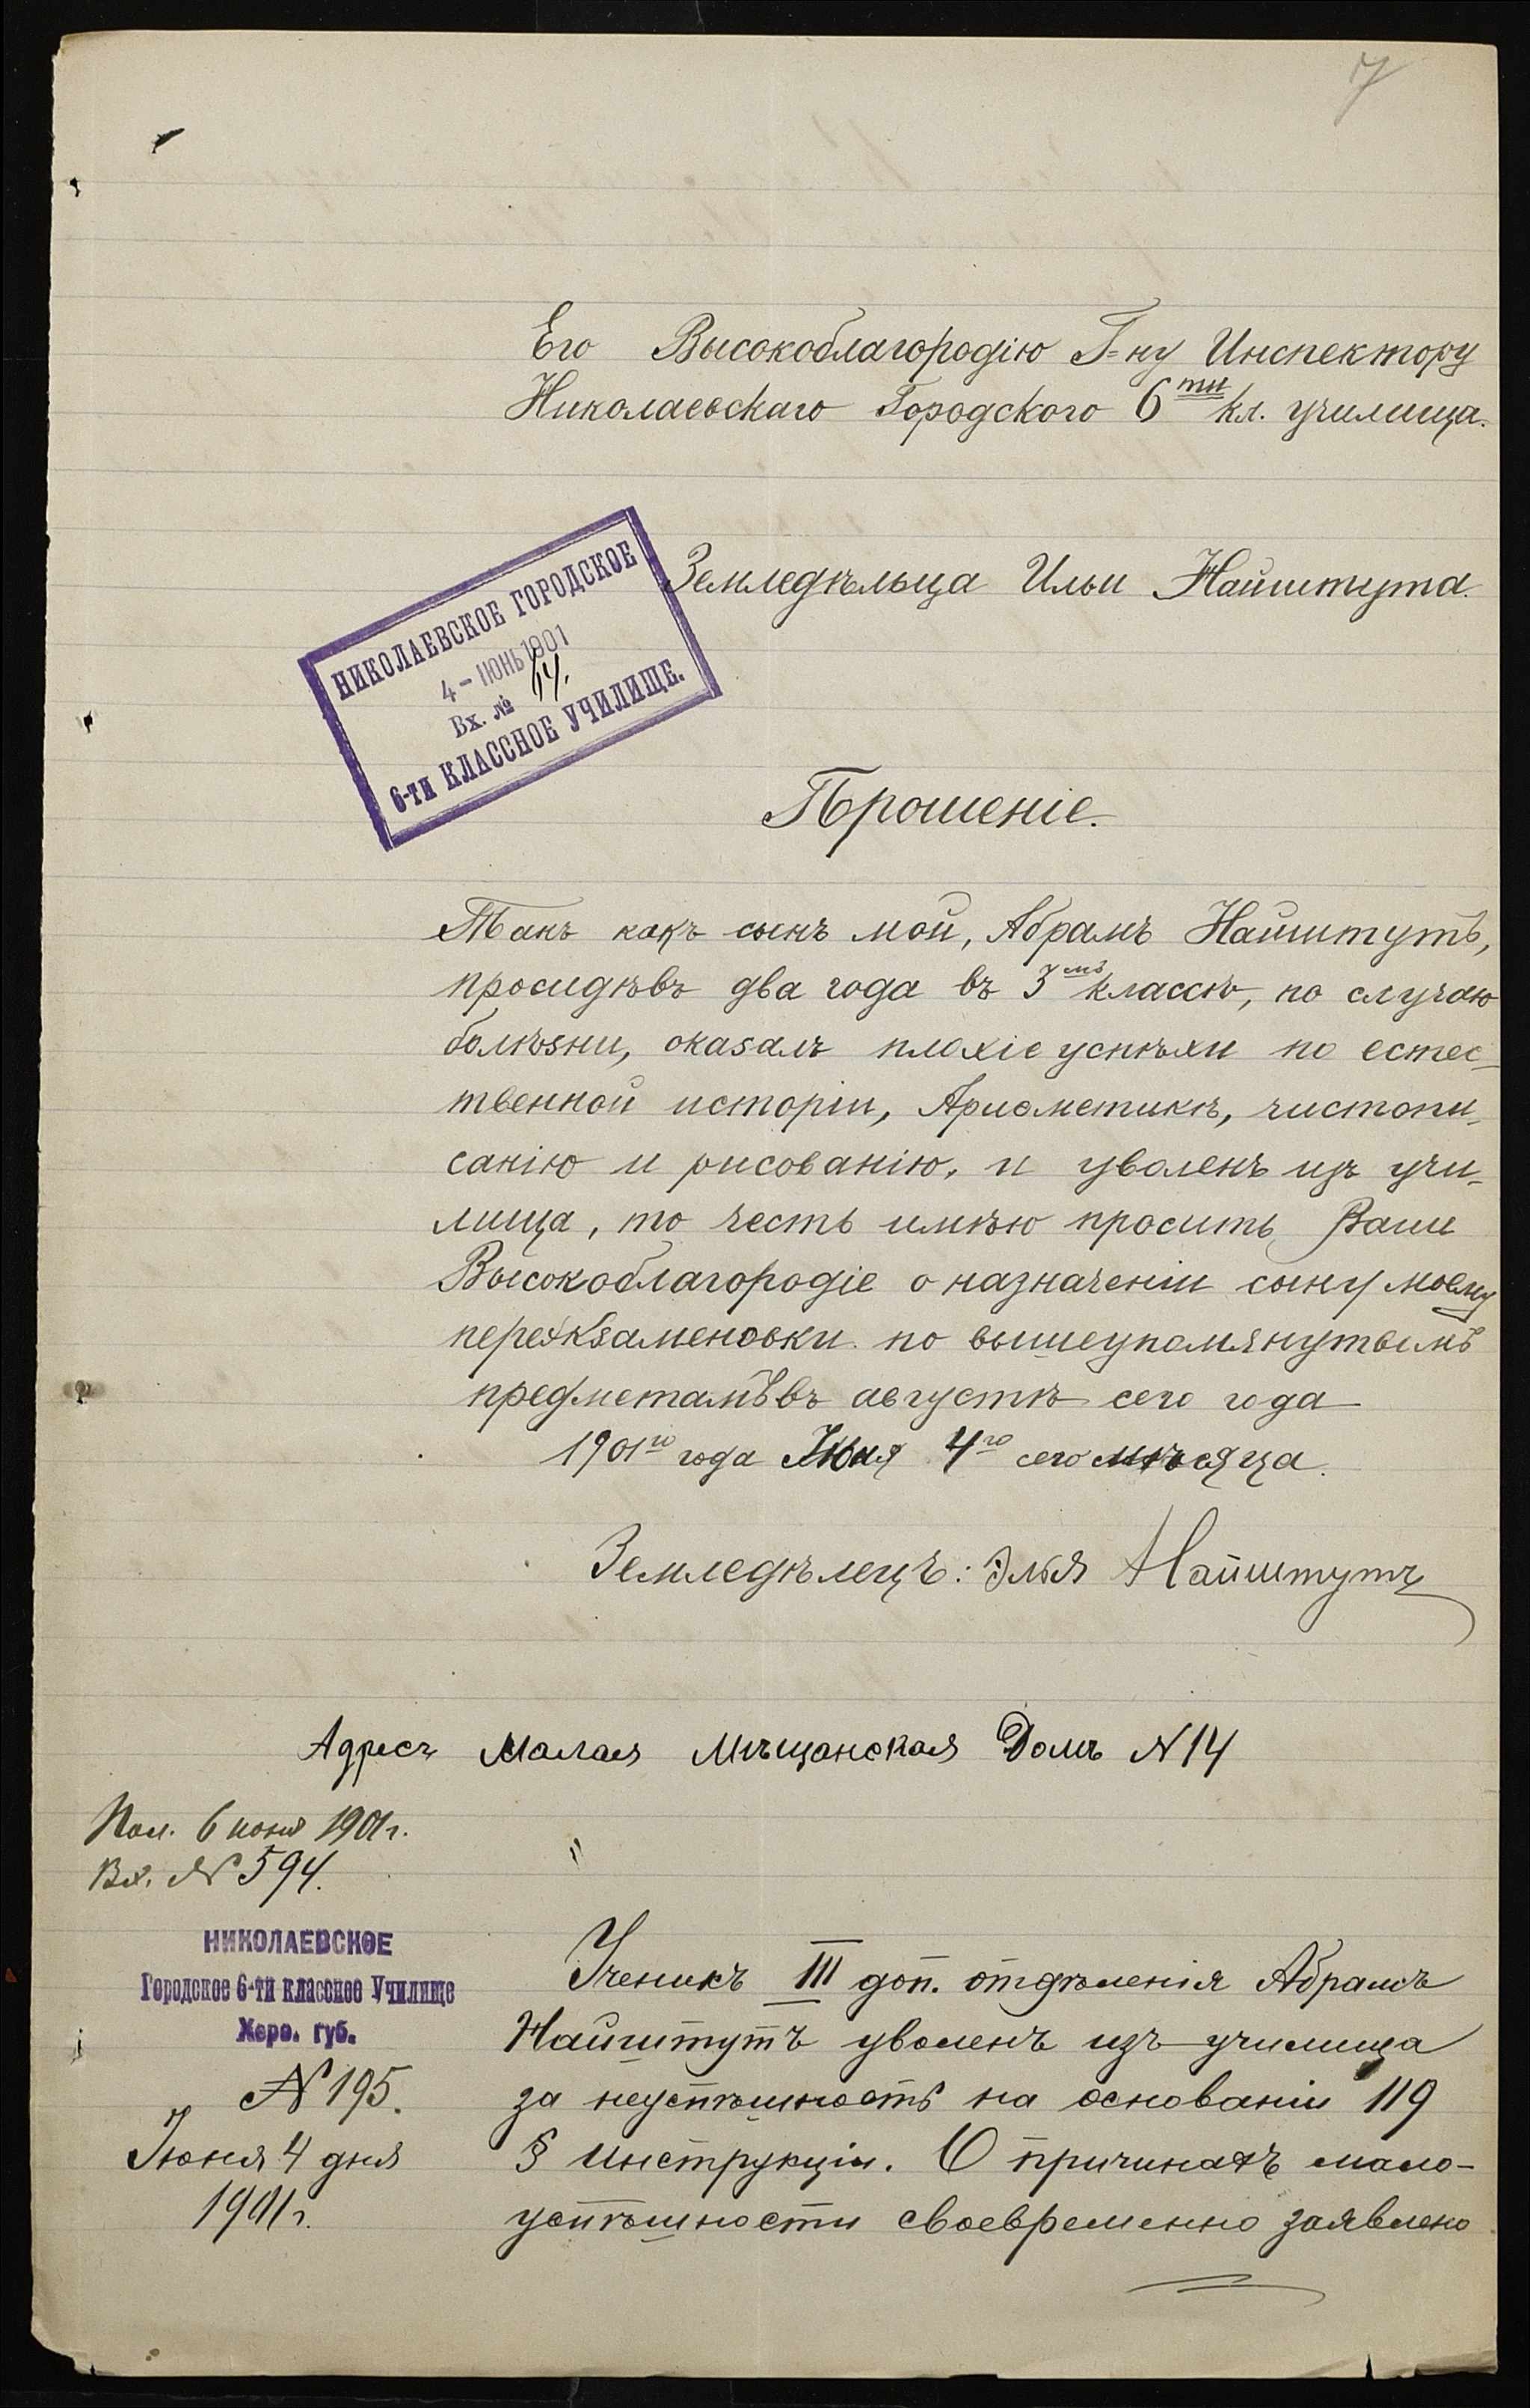 7
Его Высокоблагородію Г=ну Инспектору
Николаевскаго Городского 6ти кл. училища.
Земледѣльца Ильи Найштута.
НИКОЛАЕВСКОЕ ГОРОДСКОЕ
4 - ІЮНЬ 1901
Вх. №
6-ТИ КЛАССНОЕ УЧИЛИЩЕ.
Прошеніе.
Такъ какъ сынъ мой, Абрамъ Найштутъ,
просидѣвъ два года въ 3мъ классѣ, по случаю
болѣзни, оказалъ плохіе успѣхи по естес-
твенной исторіи, Ариѳметикѣ, чистопи-
санію и рисованію, и уволенъ изъ учи-
лища, то честь имѣю просить Ваше
Высокоблагородіе о назначеніи сыну моему
переэкзаменовки по вышеупомянутымъ
предметамъ въ августѣ сего года
1901го года Іюня 4го сего мѣсяца.
Земледѣлецъ: Элья Найштутъ
Адресъ Малая Мѣщанская Домъ N 14
Пол. 6 іюня 1901 г.
Вх. № 594.
НИКОЛАЕВСКОЕ
Городское 6-ти классное Училище
Херс. губ.
№ 195.
Іюня 4 дня
1901 г.
Ученикъ III доп. отдѣленія Абрамъ
Найштутъ уволенъ изъ училища
за неуспѣшность на основаніи 119
§ Инструкціи. О причинахъ мало-
успѣшности своевременно заявлено